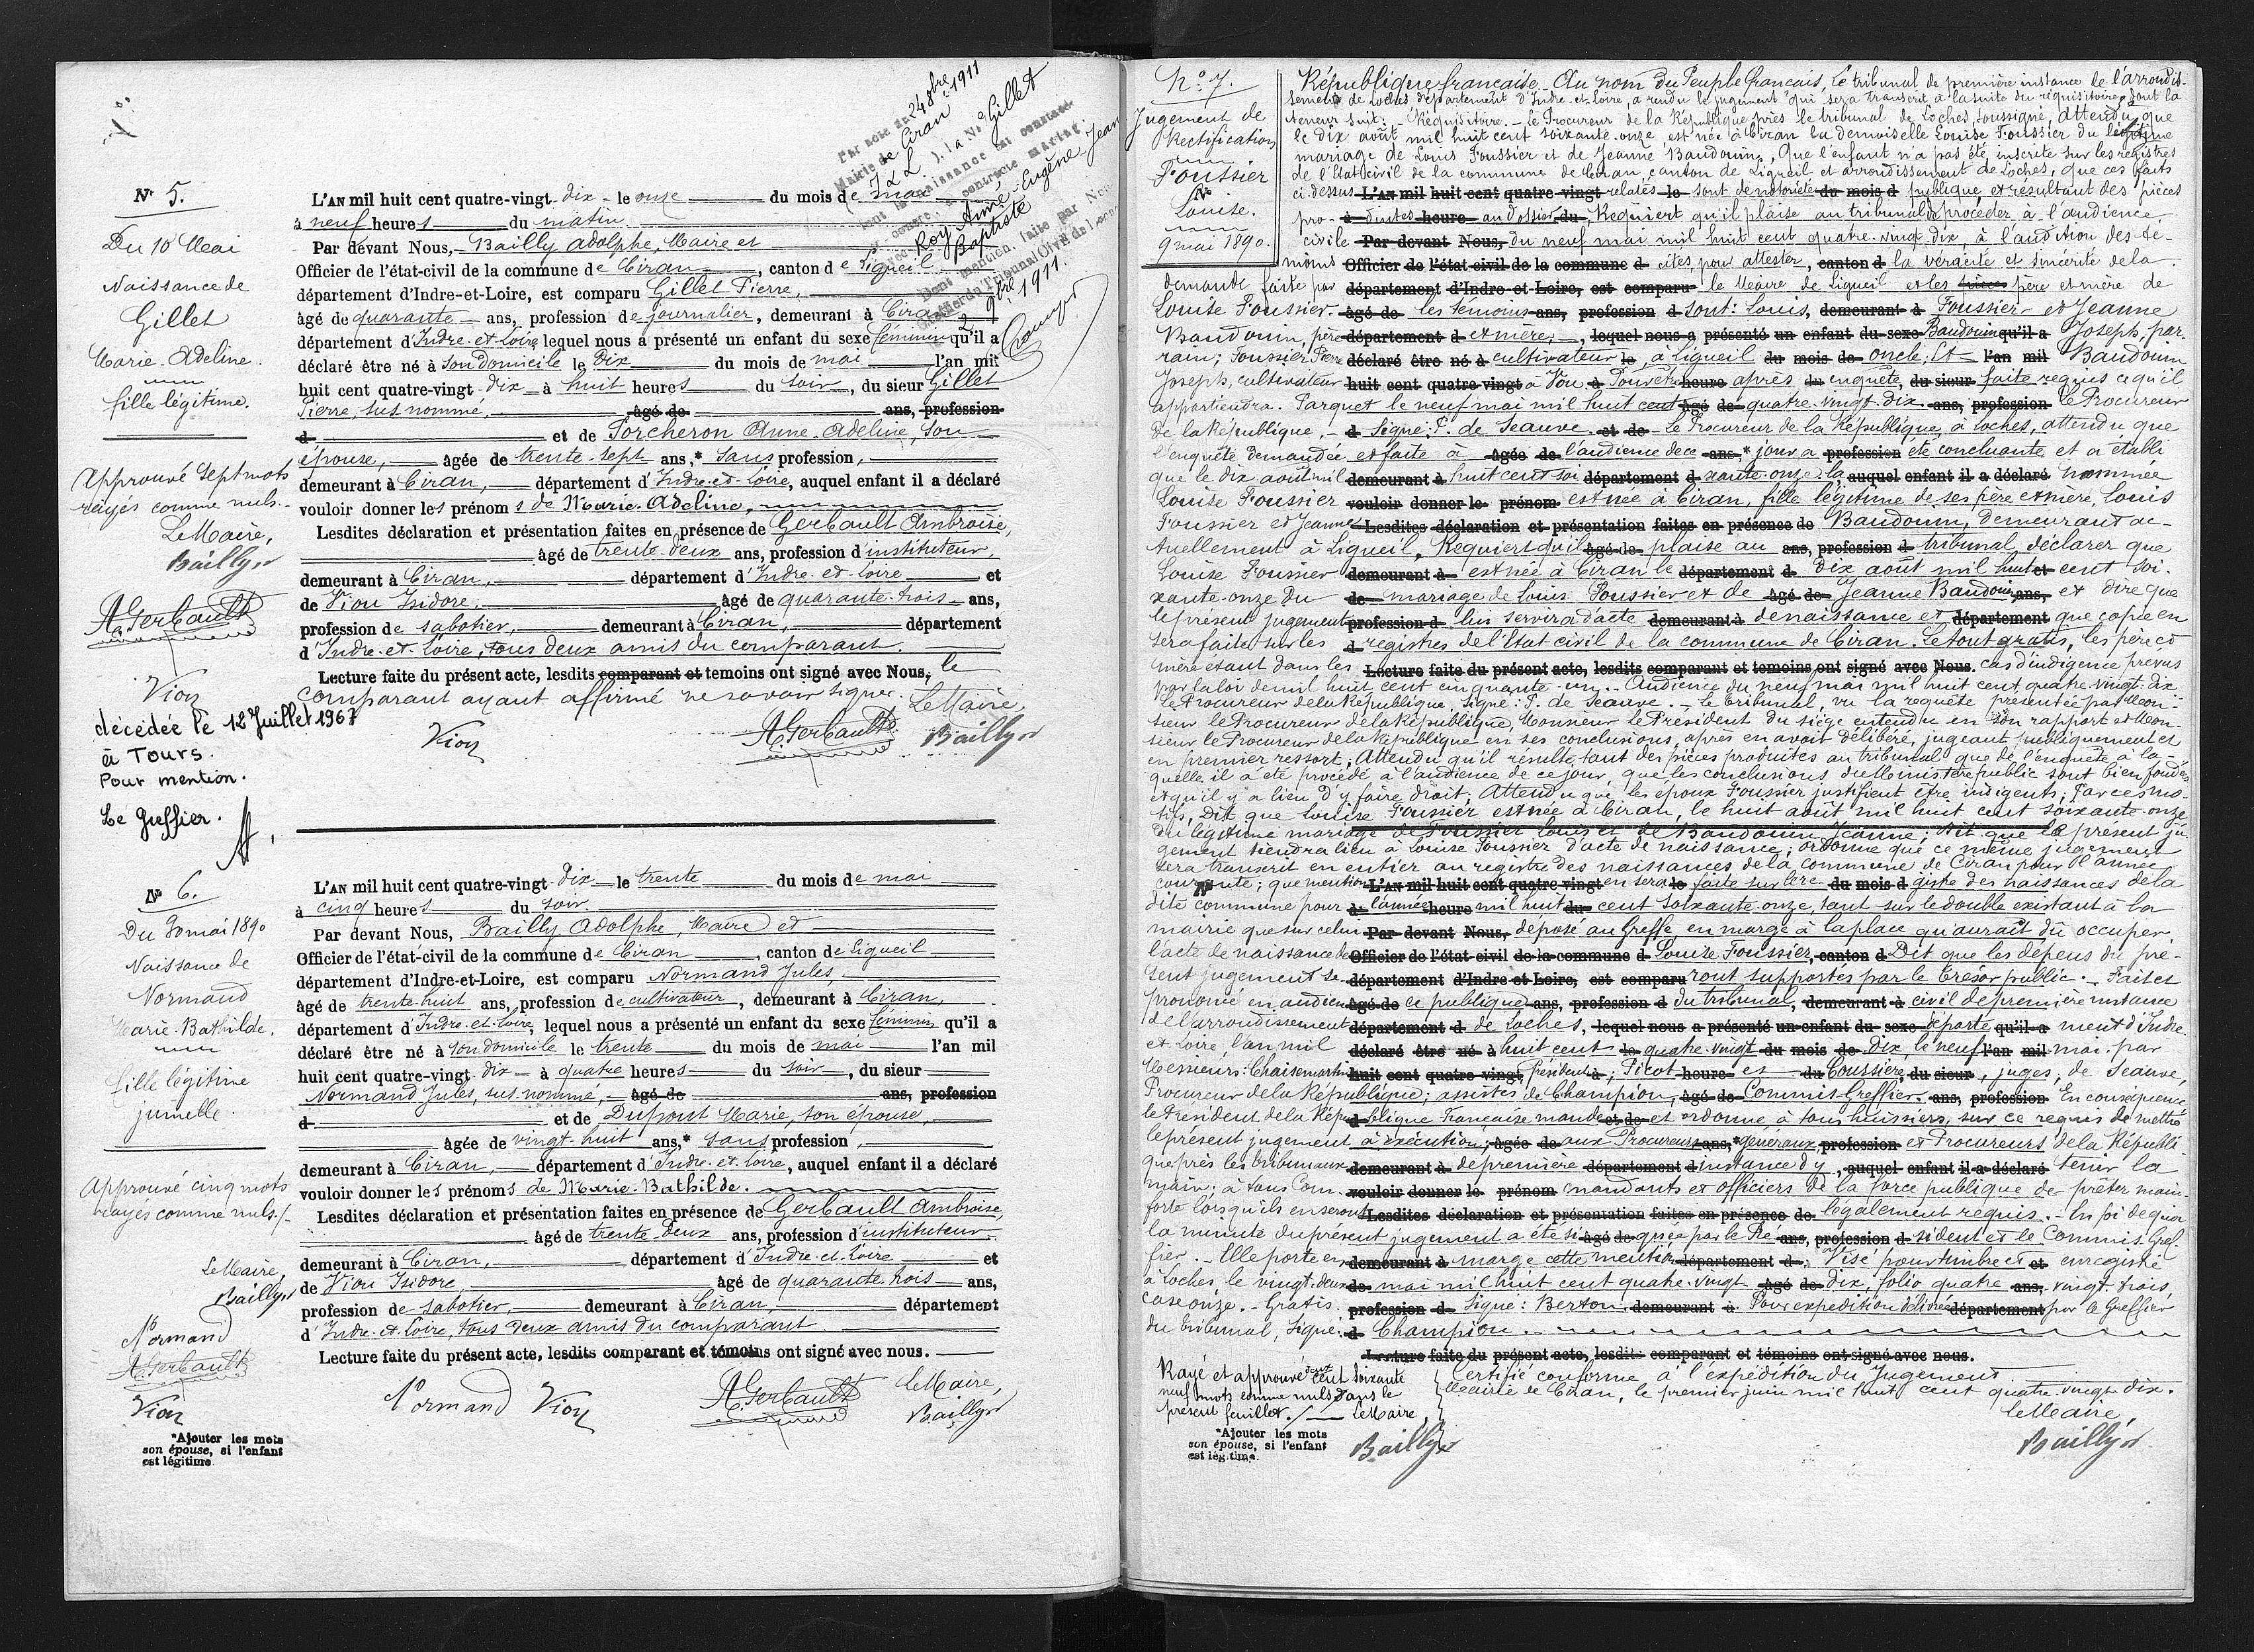 Nº 5.
Du 10 Mai
Naissance de
Gillet
Marie-Adeline.
fille légitime.
Approuvé sept mots
rayés comme nuls.
Le Maire,
Bailly
A. Gerbault
Vion
décédée le 12 Juillet 1967
à Tours.
Pour mention.
Le Greffier.
L'AN mil huit cent quatre-vingt-dix - le onze du mois de mai
à neuf heures du matin
Par devant Nous, Bailly Adolphe, Maire et
Officier de l'état-civil de la commune de Ciran, canton de Ligueil
département d'Indre-et-Loire, est comparu Gillet Pierre,
âgé de quarante ans, profession de journalier, demeurant à Ciran
département d'Indre-et-Loire lequel nous a présenté un enfant du sexe féminin qu'il a
déclaré être né à son domicile le dix du mois de mai l'an mil
huit cent quatre-vingt-dix à huit heures du soir, du sieur Gillet
Pierre, sus nommé, âgé de ans, profession
d et de Porcheron Anne-Adeline, son
épouse, âgée de trente-sept ans,* sans profession,
demeurant à Ciran, département d'Indre-et-Loire, auquel enfant il a déclaré
vouloir donner les prénoms de Marie-Adeline.
Lesdites déclaration et présentation faites en présence de Gerbault Ambroise,
âgé de trente-deux ans, profession d'instituteur,
demeurant à Ciran, département d'Indre-et-Loire et
de Viou Isidore, âgé de quarante-trois ans,
profession de sabotier, demeurant à Ciran, département
d'Indre-et-Loire, tous deux amis du comparant.
Lecture faite du présent acte, lesdits comparant et temoins ont signé avec Nous, le
comparant ayant affirmé ne savoir signer. Le Maire,
Vion A. Gerbault Bailly
Par acte du 24 8bre 1911
Mairie de Ciran
la Née Gillet
a contracté mariage
avec Roy Aimé-Eugène-Jean
Baptiste
Dont mention faite par Nous
Greffier du Tribunal Civil de Loches
2 9bre 1911.
Nº 6.
Du 30 mai 1890
Naissance de
Normand
Marie-Bathilde.
fille légitime
jumelle.
Approuvé cinq mots
rayés comme nuls./.
Le Maire,
Bailly
Normand
A. Gerbault
Vion
*Ajouter les mots
son épouse, si l'enfant
est légitime
L'AN mil huit cent quatre-vingt-dix le trente du mois de mai
à cinq heures du soir.
Par devant Nous, Bailly Adolphe, Maire et
Officier de l'état-civil de la commune de Ciran, canton de Ligueil
département d'Indre-et-Loire, est comparu Normand Jules,
âgé de trente-huit ans, profession de cultivateur, demeurant à Ciran,
département d'Indre-et-Loire, lequel nous a présenté un enfant du sexe féminin qu'il a
déclaré être né à son domicile le trente du mois de mai l'an mil
huit cent quatre-vingt-dix - à quatre heures du soir, du sieur
Normand Jules, sus nommé, âgé de ans, profession
d et de Dupont Marie, son épouse,
âgée de vingt-huit ans,* sans profession,
demeurant à Ciran, département d'Indre-et-Loire, auquel enfant il a déclaré
vouloir donner les prénoms de Marie-Bathilde.
Lesdites déclaration et présentation faites en présence de Gerbault Ambroise,
âgé de trente-deux ans, profession d'instituteur
demeurant à Ciran, département d'Indre-et-Loire et
de Viou Isidore, âgé de quarante-trois ans,
profession de sabotier, demeurant à Ciran, département
d'Indre-et-Loire, tous deux amis du comparant
Lecture faite du présent acte, lesdits comparant et témoins ont signé avec nous.
Normand Vion A. Gerbault Le Maire,
Bailly
Nº 7.
Jugement de
Rectification
Foussier
Louise.
9 mai 1890.
République française. Au nom du Peuple français, Le tribunal de première instance de l'arrondis-
sement de Loches, département d'Indre-et-Loire, a rendu le jugement qui sera transcrit à la suite du réquisitoire dont la
teneur suit: - Réquisitoire. - Le Procureur de la République près le tribunal de Loches, soussigné, Attendu que
le dix août mil huit cent soixante-onze, est née à Ciran la demoiselle Louise Foussier du légitime
mariage de Louis Foussier et de Jeanne Baudouin, Que l'enfant n'a pas été inscrite sur les registres
de l'État civil de la commune de Ciran, canton de Ligueil et arrondissement de Loches, que ces faits
ci-dessus relatés sont de notoriété publique et résultant des pièces
pro- duites au dossier, Requiert qu'il plaise au tribunal de procéder à l'audience
civile du neuf mai mil huit cent quatre-vingt-dix, à l'audition des té-
moins cités, pour attester, la véracité et sincérité de la
demande faite par le Maire de Ligueil et les père et mère de
Louise Foussier. les témoins sont: Louis, Foussier et Jeanne
Baudouin, père et mère, Baudouin Joseph, par-
rain; Foussier Pierre cultivateur, à Ligueil oncle; Et Baudouin
Joseph, cultivateur à Vou. Pour être après enquête, faite requis ce qu'il
appartiendra. Parquet le neuf mai mil huit cent quatre-vingt-dix le Procureur
de la République, - Signé: P. de Seauve. - Le Procureur de la République, à Loches, attendu que
l'enquête demandée et faite à l'audience de ce jour a été concluante et a établi
que le dix août mil huit cent soi xante-onze la nommée
Louise Foussier est née à Ciran, fille légitime de ses père et mère Louis
Foussier et Jeanne Baudouin, demeurant ac-
tuellement à Ligueil, Requiert qu'il plaise au tribunal, déclarer que
Louise Foussier est née à Ciran le dix août mil huit cent soi-
xante-onze du mariage de Louis Foussier et de Jeanne Baudouin, et dire que
le présent jugement lui servira d'acte de naissance et que copie en
sera faite sur les registres de l'État civil de la commune de Ciran. Le tout gratis, les père et
mère étant dans les cas d'indigence prévus
par la loi de mil huit cent cinquante-un. - Audience du neuf mai mil huit cent quatre-vingt-dix
Le Procureur de la République, Signé: P. de Seauve. - Le tribunal, vu la requête présentée par Mon-
sieur le Procureur de la République, Monsieur le Président du siège entendu en son rapport et Mon-
sieur le Procureur de la République en ses conclusions, après en avoir délibéré, jugeant publiquement et
en premier ressort; Attendu qu'il résulte tant des pièces produites au tribunal que de l'enquête à la-
quelle il a été procédé à l'audience de ce jour, que les conclusions du Ministère public sont bien fondées
et qu'il y a lieu d'y faire droit; Attendu que les époux Foussier justifient être indigents; Par ces mo-
tifs, Dit que Louise Foussier est née à Ciran, le huit août mil huit cent soixante-onze
du légitime mariage de Foussier Louis et de Baudouin Jeanne; Dit que le présent ju-
gement tiendra lieu à Louise Foussier d'acte de naissance; ordonne que ce même jugement
sera transcrit en entier au registre des naissances de la commune de Ciran pour l'année
courante; que mention en sera faite sur le re gistre des naissances de la
dite commune pour l'année mil huit cent soixante-onze, tant sur le double existant à la
mairie que sur celui déposé au Greffe en marge à la place qu'aurait dû occuper
l'acte de naissance de Louise Foussier, Dit que les dépens du pré-
sent jugement se ront supportés par le trésor public. - Fait et
prononcé en audien ce publique du tribunal, civil de première instance
de l'arrondissement de Loches, départe ment d'Indre
et-Loire, l'an mil huit cent quatre-vingt dix, le neuf mai par
Messieurs: Chaisemartin Président; Picot et Coussière, juges, de Seauve,
Procureur de la République; assistés de Champion, Commis-Greffier. En conséquence
le Président de la Rép ublique Française mande et ordonne à tous huissiers, sur ce requis de mettre
le présent jugement à exécution; aux Procureurs généraux et Procureurs de la Républi-
que près les tribunaux de première instance d'y tenir la
main; à tous Com- mandants et officiers de la force publique de prêter main-
forte lorsqu'ils en seront légalement requis. - En foi de quoi
la minute du présent jugement a été si gnée par le Pré sident et le Commis Gref-
fier. - Elle porte en marge cette mention: Visé pour timbre et enregistré
à Loches le vingt-deux mai mil huit cent quatre-vingt dix, folio quatre vingt-trois,
case onze. - Gratis. Signé: Berton. Pour expédition délivrée par le Greffier
du tribunal, Signé: Champion.
Lecture faite du présent acte, lesdits comparant et témoins ont signé avec nous.
Rayé et approuvé deux cent soixante
neuf mots comme nuls dans le
présent feuillet. Le Maire,
Bailly
Certifié conforme à l'expédition du Jugement
Mairie de Ciran, le premier juin mil huit cent quatre-vingt dix.
Le Maire,
Bailly
*Ajouter les mots
son épouse, si l'enfant
est légitime.